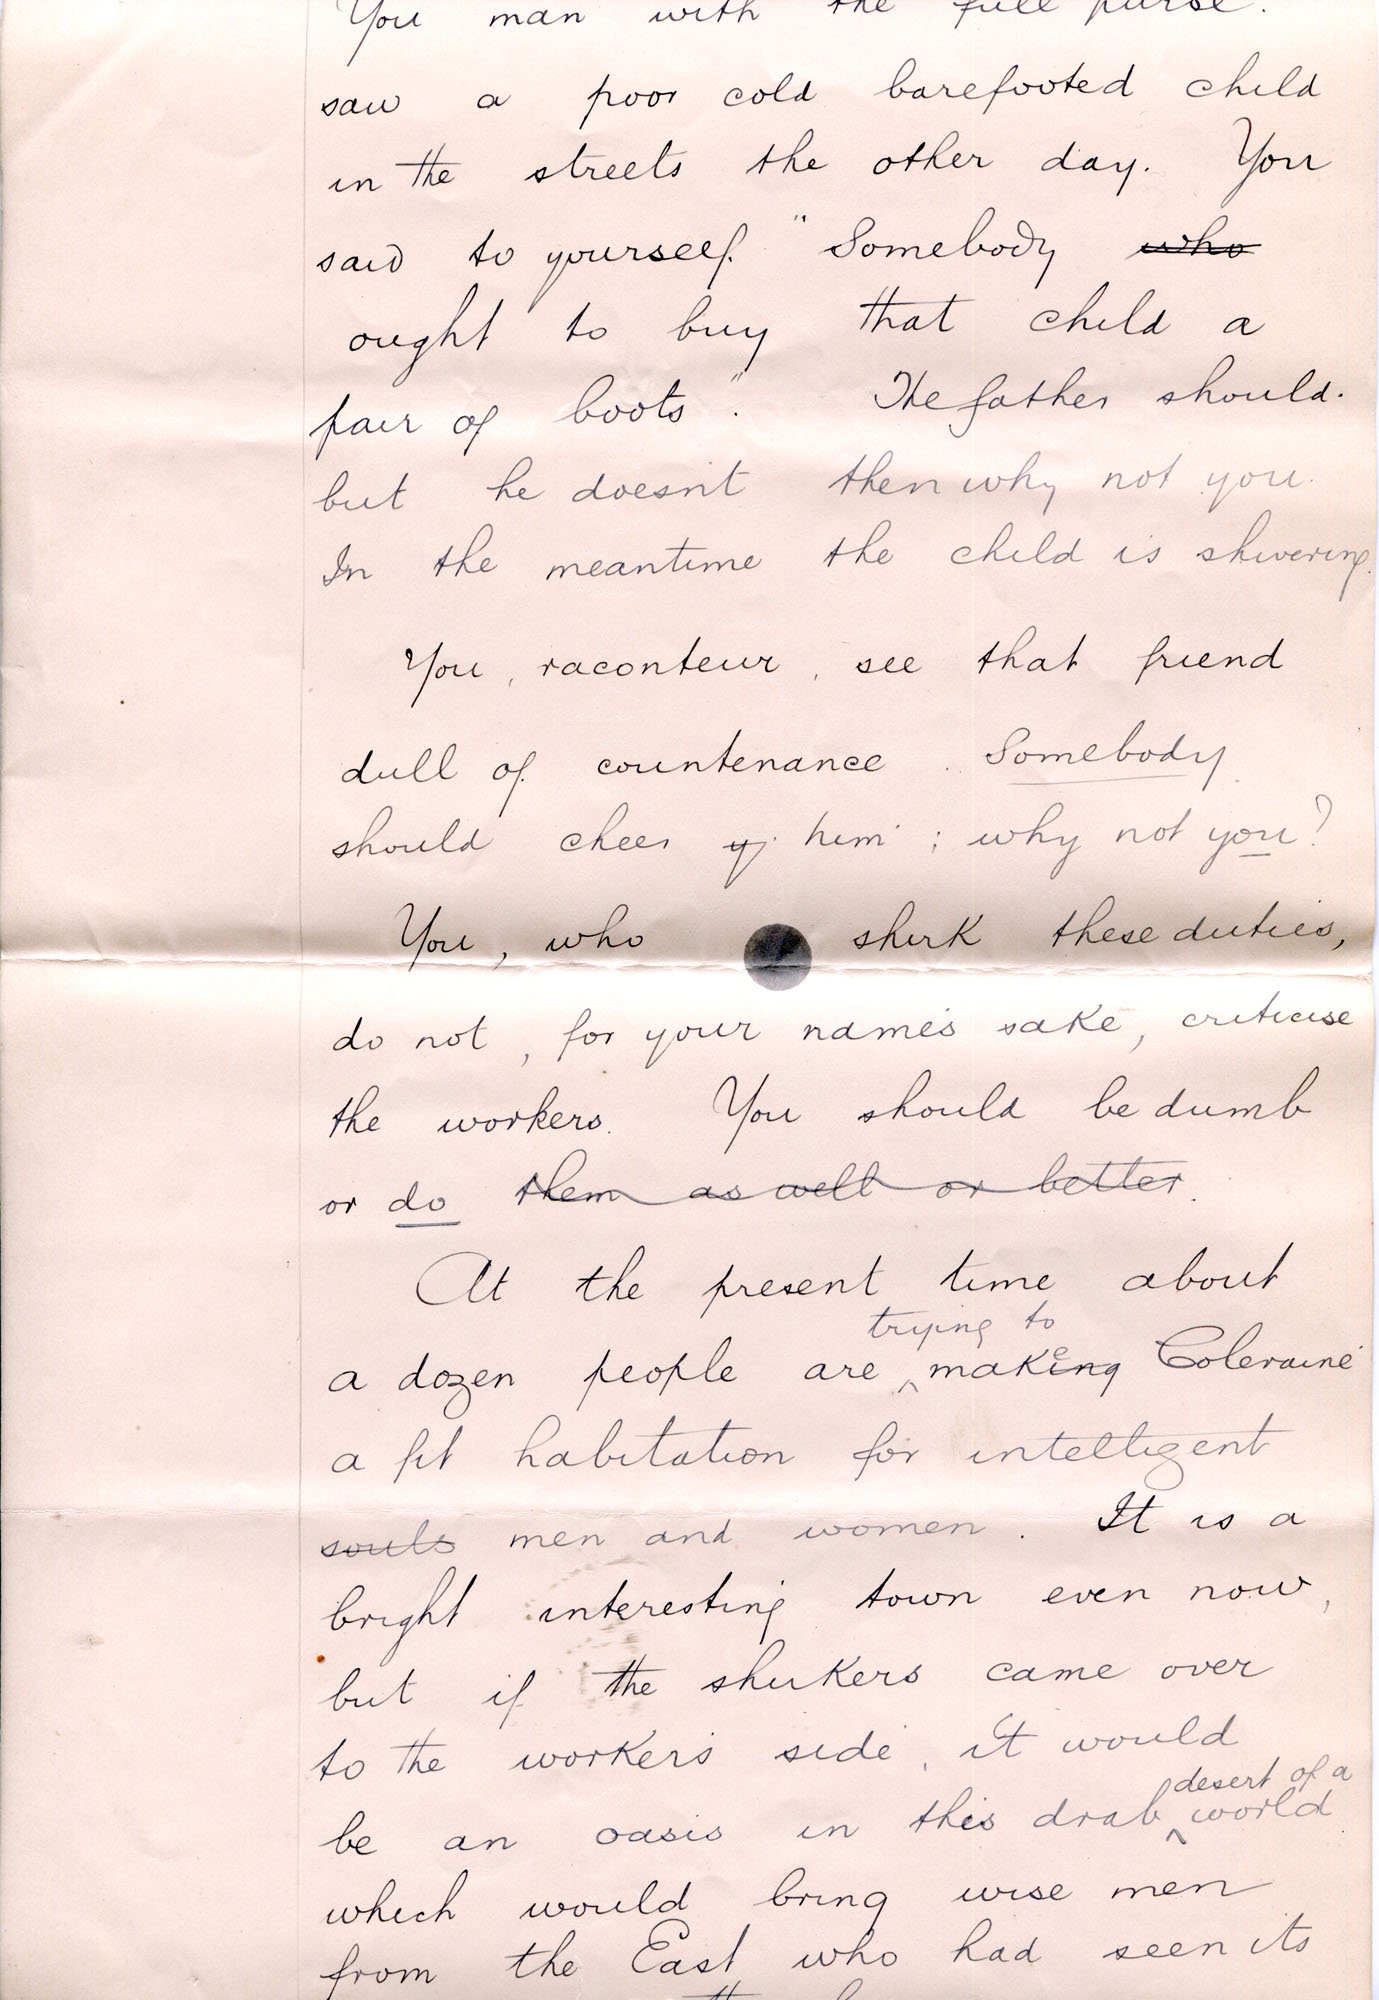 You man with the full purse.
saw a poor cold barefooted child
in the streets the other day. You
said to yourself. "Somebody ~~who~~
ought to buy that child a
pair of boots". The father should.
but he doesn't then why not you.
In the meantime the child is shivering.
You, raconteur, see that friend
dull of countenance. Somebody
should cheer ~~y~~ him; why not you?
You, who shirk these duties,
do not, for your name's sake, criticise
the workers. You should be dumb
or do ~~them as well or better~~.
At the present time about
trying to
a dozen people are ^ make~~ing~~ Coleraine
a fit habitation for intelligent
~~souls~~ men and women. It is a
bright interesting town even now,
but if the shirkers came over
to the worker's side, it would
desert of a
be an oasis in this drab ^ world
which would bring wise men
from the East who had seen its